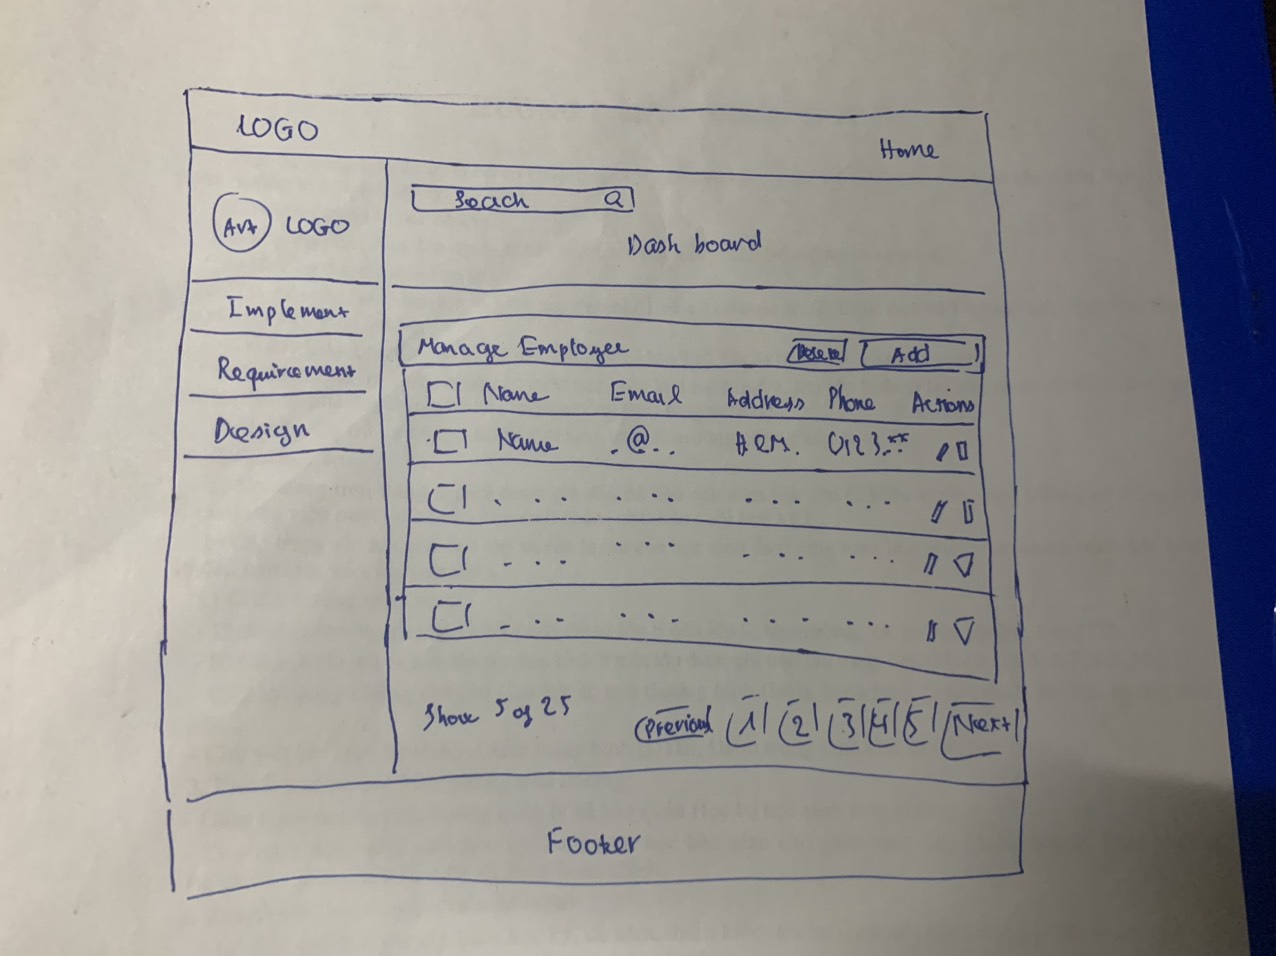 LOGO
Home
Seach
Dash board
Avt LOGO
Implement
Requirement
Design
Manage Employee Delete Add
Name Email Address Phone Actions
Name .@.. HCM. 0123.**
Show 5 of 25
Previous 1 2 3 4 5 Next
Footer